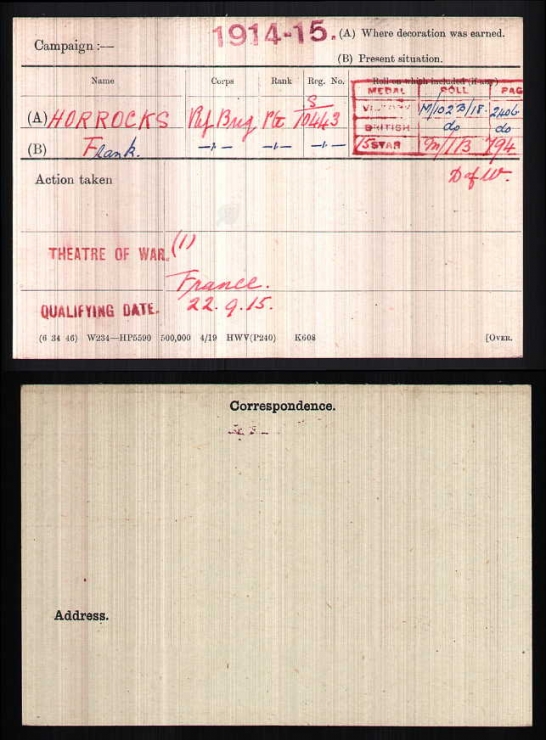 Campaign :—
1914-15.
(A) Where decoration was earned.
(B) Present situation.
Name Corps Rank Reg. No. Roll on which included (if any)
MEDAL ROLL PAGE
(A) HORROCKS Rif Brig Pte S/10443
VICTORY M/102B/18. 2406
(B) Frank. —"— —"— —"—
BRITISH do do
15 STAR M/1/B 794
Action taken
D of W.
THEATRE OF WAR. (1)
France.
QUALIFYING DATE. 22.9.15.
(6 34 46) W234—HP5590 500,000 4/19 HWV(P240) K608 [OVER.
Correspondence.
Address.